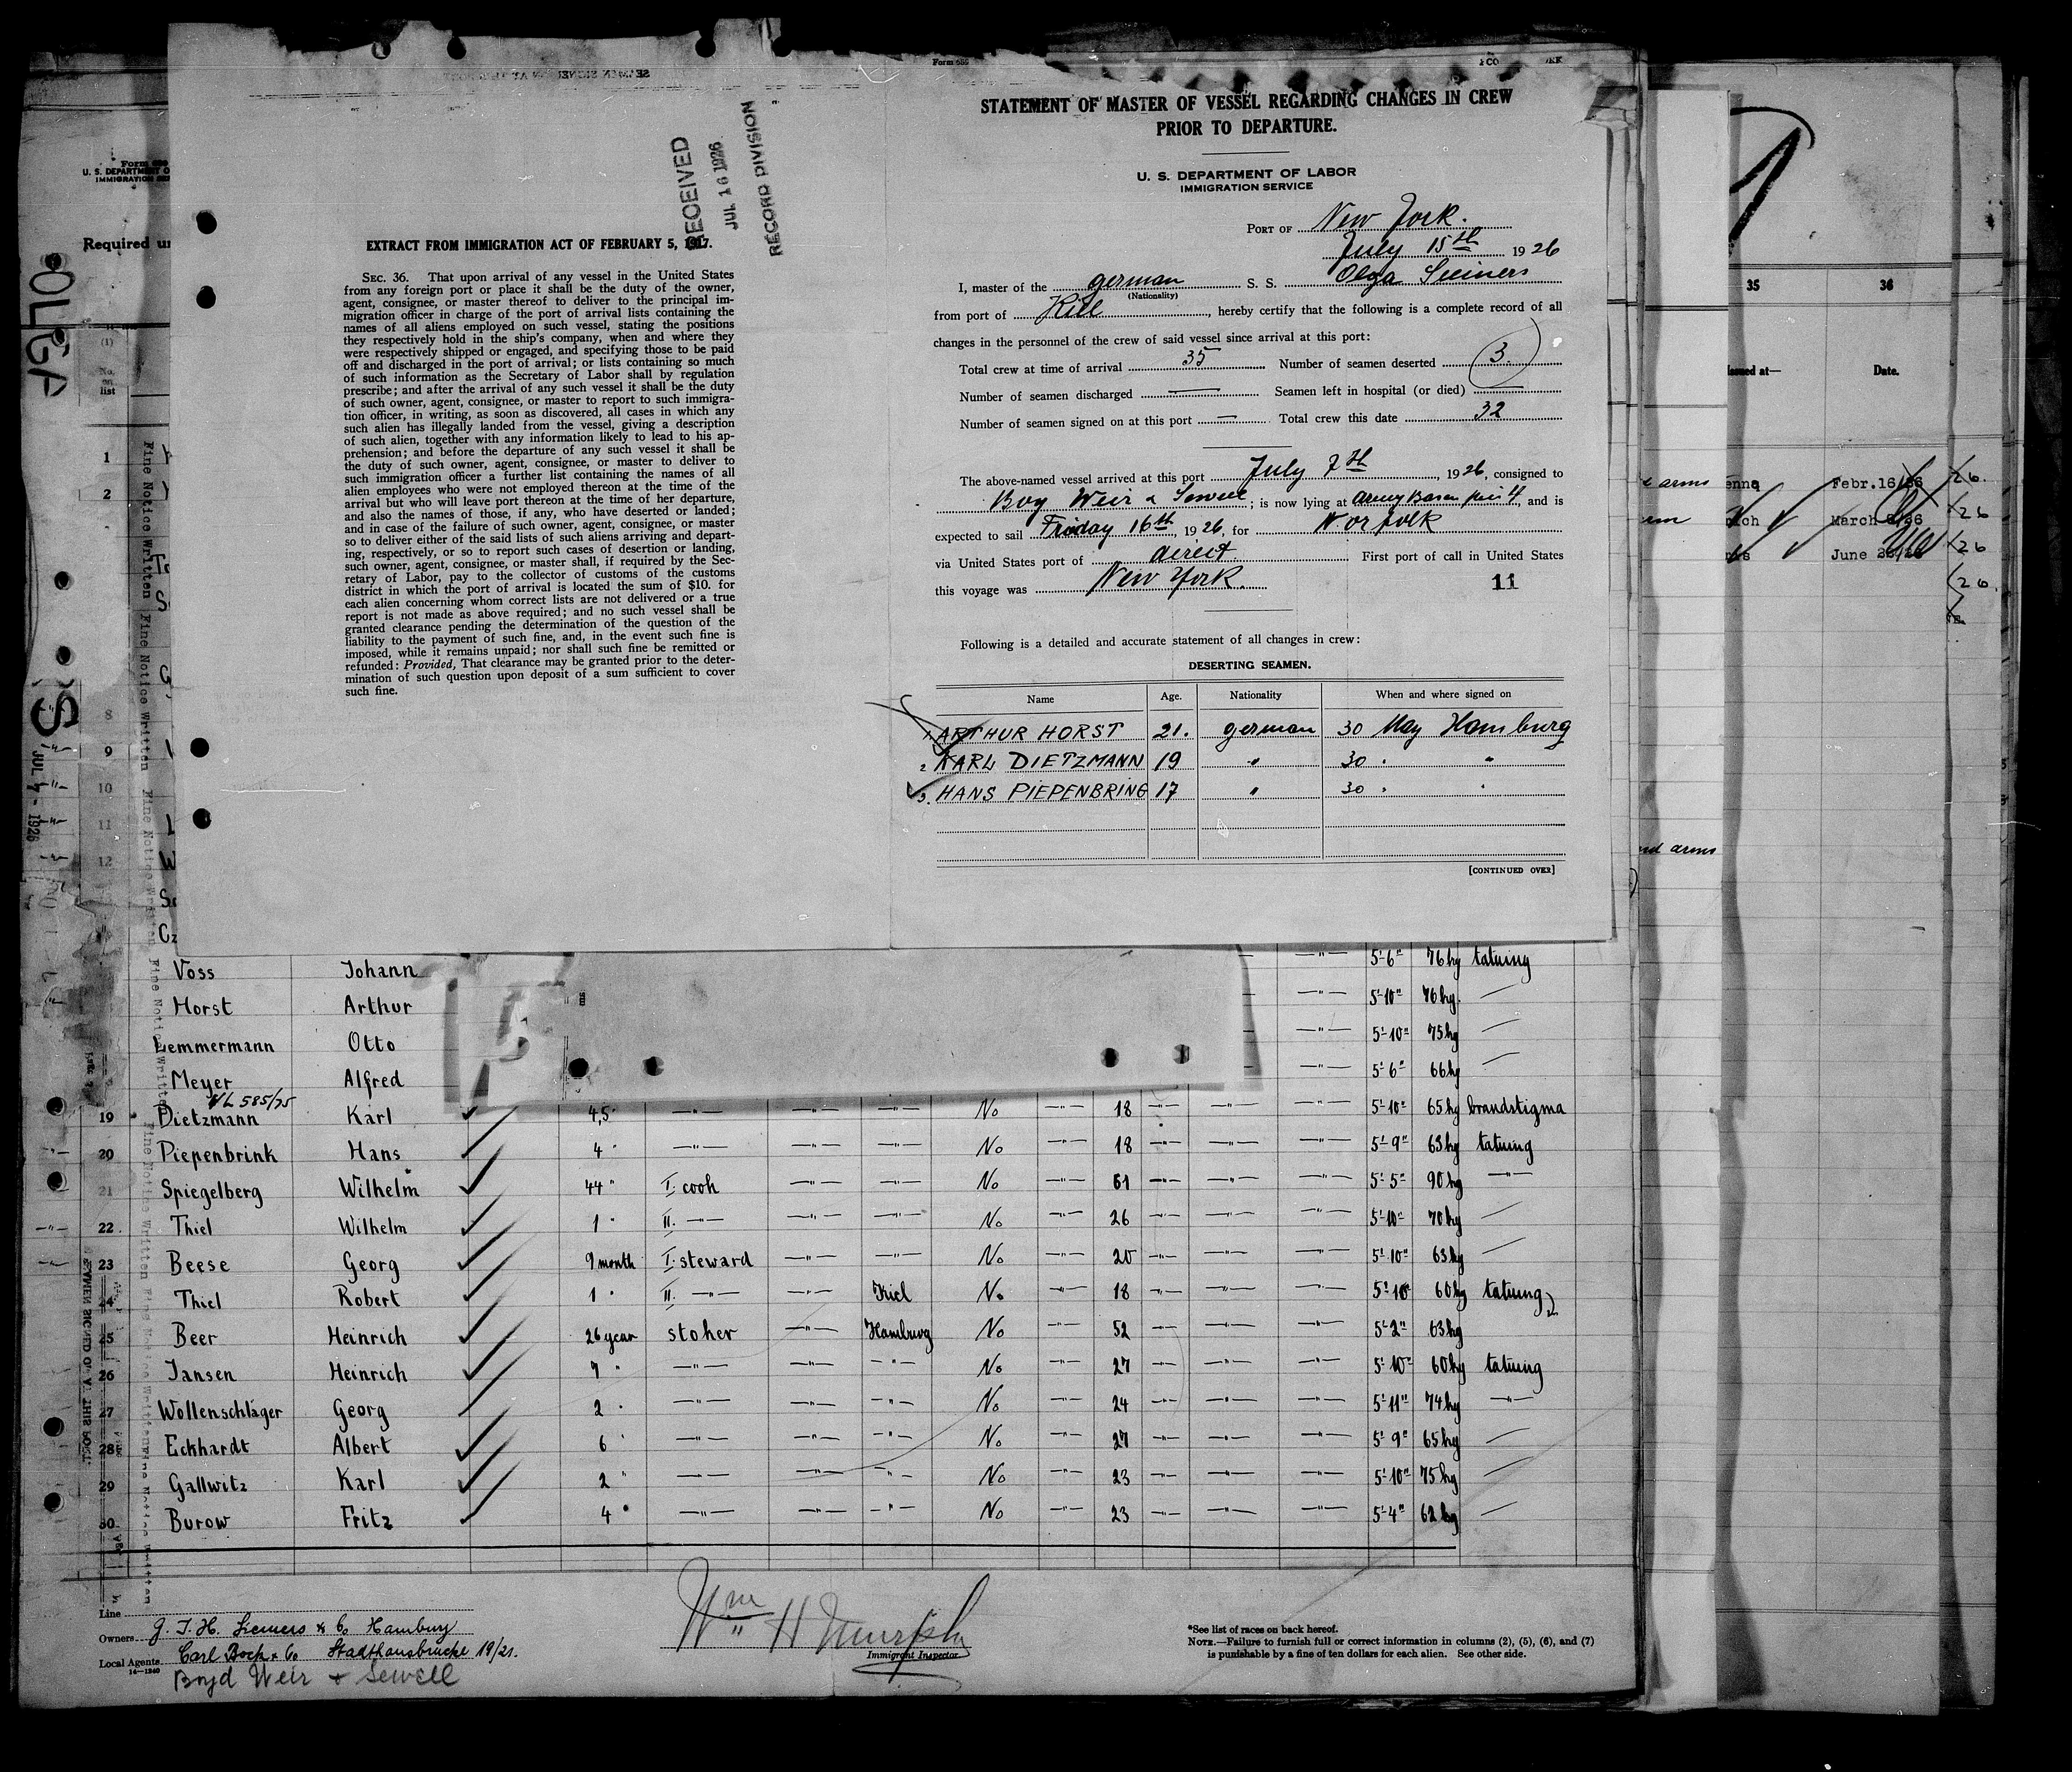 Form 686
STATEMENT OF MASTER OF VESSEL REGARDING CHANGES IN CREW
PRIOR TO DEPARTURE.
U. S. DEPARTMENT OF LABOR
IMMIGRATION SERVICE
PORT OF New York.
July 15th 1926
I, master of the german S. S. Olga Siemers
(Nationality)
from port of Kiel, hereby certify that the following is a complete record of all
changes in the personnel of the crew of said vessel since arrival at this port:
Total crew at time of arrival 35 Number of seamen deserted 3.
Number of seamen discharged — Seamen left in hospital (or died) —
Number of seamen signed on at this port — Total crew this date 32
The above-named vessel arrived at this port July 7th, 1926, consigned to
Boy Weir & Sewell; is now lying at Army Basen pier 4, and is
expected to sail Friday 16th, 1926, for Norfolk
via United States port of direct First port of call in United States
this voyage was New York. 11
Following is a detailed and accurate statement of all changes in crew:
DESERTING SEAMEN.
Name Age. Nationality When and where signed on
1. ARTHUR HORST 21. german 30 May Hamburg
2 KARL DIETZMANN 19 " 30 " "
3. HANS PIEPENBRING 17 " 30 " "
[CONTINUED OVER]
RECEIVED
JUL 16 1926
RECORD DIVISION
EXTRACT FROM IMMIGRATION ACT OF FEBRUARY 5, 1917.
SEC. 36. That upon arrival of any vessel in the United States
from any foreign port or place it shall be the duty of the owner,
agent, consignee, or master thereof to deliver to the principal im-
migration officer in charge of the port of arrival lists containing the
names of all aliens employed on such vessel, stating the positions
they respectively hold in the ship's company, when and where they
were respectively shipped or engaged, and specifying those to be paid
off and discharged in the port of arrival; or lists containing so much
of such information as the Secretary of Labor shall by regulation
prescribe; and after the arrival of any such vessel it shall be the duty
of such owner, agent, consignee, or master to report to such immigra-
tion officer, in writing, as soon as discovered, all cases in which any
such alien has illegally landed from the vessel, giving a description
of such alien, together with any information likely to lead to his ap-
prehension; and before the departure of any such vessel it shall be
the duty of such owner, agent, consignee, or master to deliver to
such immigration officer a further list containing the names of all
alien employees who were not employed thereon at the time of the
arrival but who will leave port thereon at the time of her departure,
and also the names of those, if any, who have deserted or landed;
and in case of the failure of such owner, agent, consignee, or master
so to deliver either of the said lists of such aliens arriving and depart-
ing, respectively, or so to report such cases of desertion or landing,
such owner, agent, consignee, or master shall, if required by the Sec-
retary of Labor, pay to the collector of customs of the customs
district in which the port of arrival is located the sum of $10. for
each alien concerning whom correct lists are not delivered or a true
report is not made as above required; and no such vessel shall be
granted clearance pending the determination of the question of the
liability to the payment of such fine, and, in the event such fine is
imposed, while it remains unpaid; nor shall such fine be remitted or
refunded: Provided, That clearance may be granted prior to the deter-
mination of such question upon deposit of a sum sufficient to cover
such fine.
U. S. DEPARTMENT O
IMMIGRATION SE
Required u
OLGA
S
JUL 7 - 1926
(1)
No. on list
1
2
8
9
10
11
12
35 36
Issued at— Date.
arms enna Febr.16/26
March 26
June 26
and arms
Voss Johann —"— 5'-6" 76kg tatuing
Horst Arthur —"— 5'-10" 76kg. —
Lemmermann Otto —"— 5'-10" 75kg —
Meyer Alfred —"— 5'-6" 66kg —
VL 585/75
19 Dietzmann Karl 4,5" —"— —"— —"— No —"— 18 —"— —"— —"— 5'-10" 65kg brandstigma
20 Piepenbrink Hans 4 " —"— —"— —"— No —"— 18 —"— —"— —"— 5'-9" 63kg tatuing
21 Spiegelberg Wilhelm 44 " I. cook —"— —"— No —"— 61 —"— —"— —"— 5'-5" 90kg —"—
22 Thiel Wilhelm 1 " II. —"— —"— —"— No —"— 26 —"— —"— —"— 5'-10" 70kg —
23 Beese Georg 9 month I. steward —"— —"— No —"— 20 —"— —"— —"— 5'-10" 63kg —
24 Thiel Robert 1 " II. —"— —"— Kiel No —"— 18 —"— —"— —"— 5'-10" 60kg tatuing
25 Beer Heinrich 26 year stoker —"— Hamburg No —"— 52 —"— —"— —"— 5'-2" 63kg
26 Jansen Heinrich 7 " —"— —"— —"— No —"— 27 —"— —"— —"— 5'-10" 60kg tatuing
27 Wollenschläger Georg 2 " —"— —"— —"— No —"— 24 —"— —"— —"— 5'-11" 74kg —"—
28 Eckhardt Albert 6 " —"— —"— —"— No —"— 27 —"— —"— —"— 5'-9" 65kg —
29 Gallwitz Karl 2 " —"— —"— —"— No —"— 23 —"— —"— —"— 5'-10" 75kg —
30 Burow Fritz 4 " —"— —"— —"— No —"— 23 —"— —"— —"— 5'-4" 62kg —
Line
Owners G. J. H. Siemers & Co Hamburg
Local Agents Carl Bock & Co Stadthausbrücke 19/21.
14—1240
Boyd Weir & Sewell
Wm H Murphy
Immigrant Inspector
*See list of races on back hereof.
NOTE.—Failure to furnish full or correct information in columns (2), (5), (6), and (7)
is punishable by a fine of ten dollars for each alien. See other side.